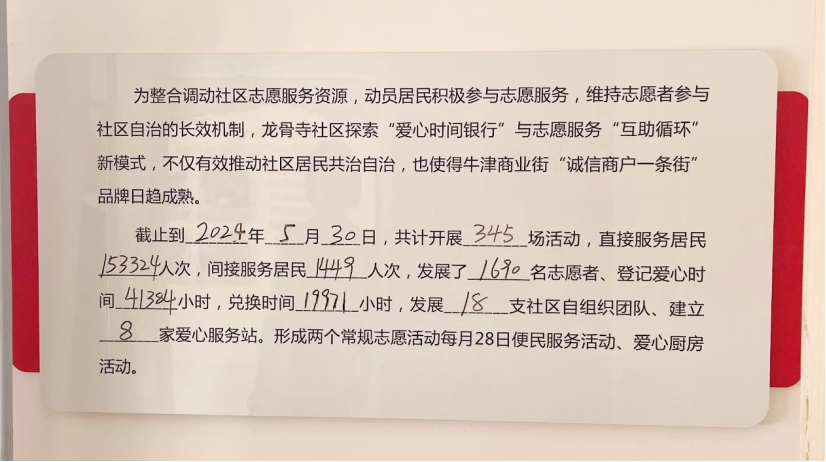 为整合调动社区志愿服务资源，动员居民积极参与志愿服务，维持志愿者参与
社区自治的长效机制，龙骨寺社区探索“爱心时间银行”与志愿服务“互助循环”
新模式，不仅有效推动社区居民共治自治，也使得牛津商业街“诚信商户一条街”
品牌日趋成熟。
截止到2024年5月30日，共计开展345场活动，直接服务居民
153324人次，间接服务居民1449人次，发展了1690名志愿者、登记爱心时
间41384小时，兑换时间19971小时，发展18支社区自组织团队、建立
8家爱心服务站。形成两个常规志愿活动每月28日便民服务活动、爱心厨房
活动。